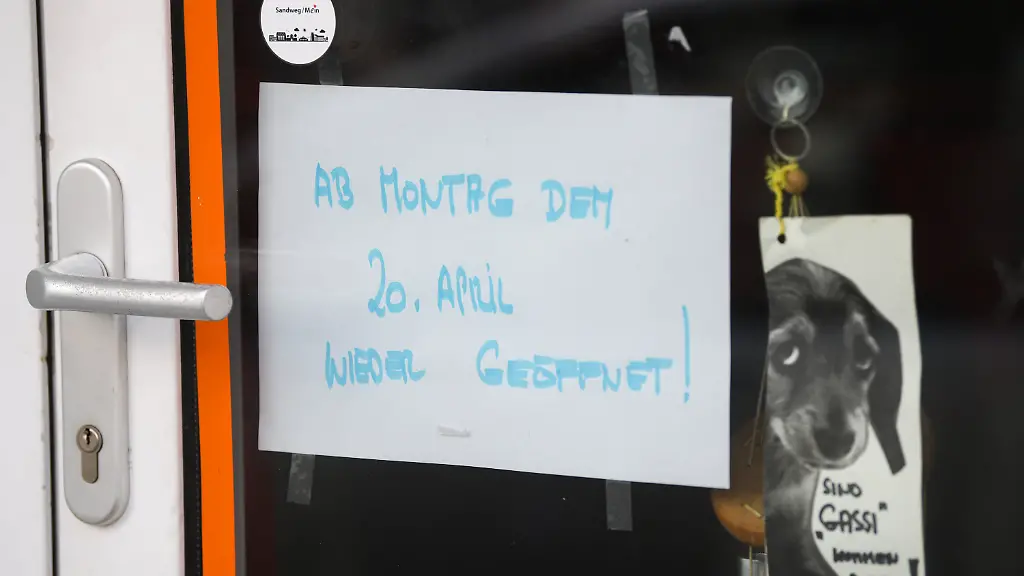 Sandweg/Main
AB MONTAG DEM
20. APRIL
WIEDER GEÖFFNET!
SIND
"GASSI"